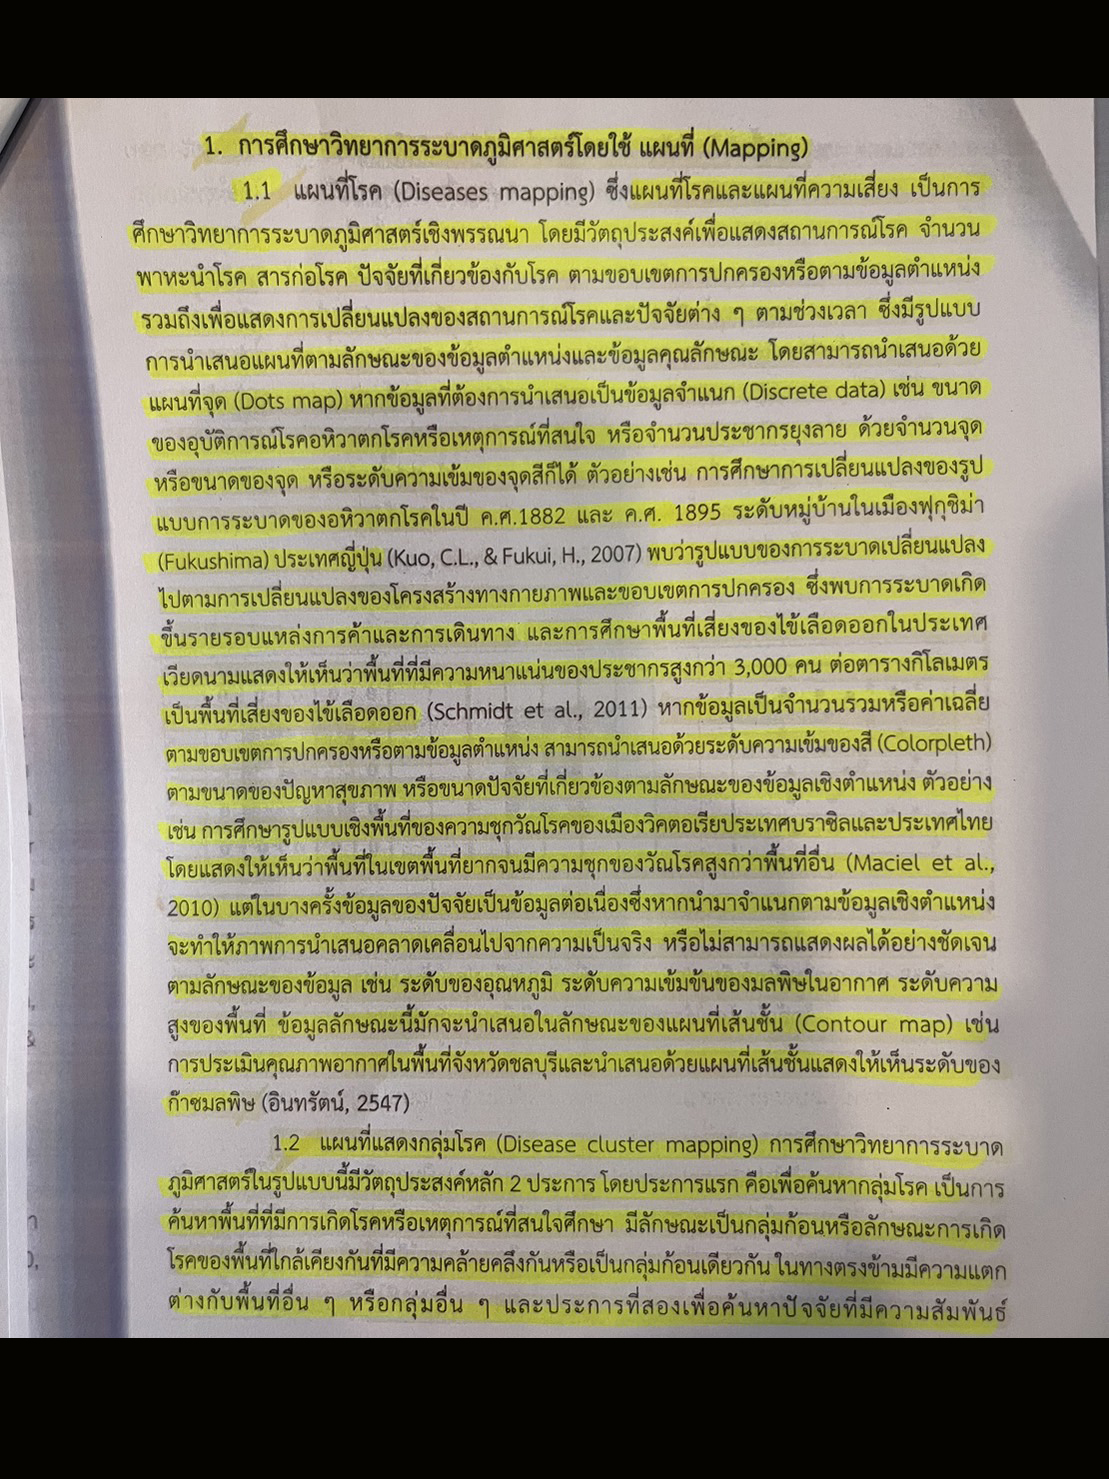 1. การศึกษาวิทยาการระบาดภูมิศาสตร์โดยใช้ แผนที่ (Mapping)
1.1 แผนที่โรค (Diseases mapping) ซึ่งแผนที่โรคและแผนที่ความเสี่ยง เป็นการ
ศึกษาวิทยาการระบาดภูมิศาสตร์เชิงพรรณนา โดยมีวัตถุประสงค์เพื่อแสดงสถานการณ์โรค จำนวน
พาหะนำโรค สารก่อโรค ปัจจัยที่เกี่ยวข้องกับโรค ตามขอบเขตการปกครองหรือตามข้อมูลตำแหน่ง
รวมถึงเพื่อแสดงการเปลี่ยนแปลงของสถานการณ์โรคและปัจจัยต่าง ๆ ตามช่วงเวลา ซึ่งมีรูปแบบ
การนำเสนอแผนที่ตามลักษณะของข้อมูลตำแหน่งและข้อมูลคุณลักษณะ โดยสามารถนำเสนอด้วย
แผนที่จุด (Dots map) หากข้อมูลที่ต้องการนำเสนอเป็นข้อมูลจำแนก (Discrete data) เช่น ขนาด
ของอุบัติการณ์โรคอหิวาตกโรคหรือเหตุการณ์ที่สนใจ หรือจำนวนประชากรยุงลาย ด้วยจำนวนจุด
หรือขนาดของจุด หรือระดับความเข้มของจุดสีก็ได้ ตัวอย่างเช่น การศึกษาการเปลี่ยนแปลงของรูป
แบบการระบาดของอหิวาตกโรคในปี ค.ศ.1882 และ ค.ศ. 1895 ระดับหมู่บ้านในเมืองฟุกุชิม่า
(Fukushima) ประเทศญี่ปุ่น (Kuo, C.L., & Fukui, H., 2007) พบว่ารูปแบบของการระบาดเปลี่ยนแปลง
ไปตามการเปลี่ยนแปลงของโครงสร้างทางกายภาพและขอบเขตการปกครอง ซึ่งพบการระบาดเกิด
ขึ้นรายรอบแหล่งการค้าและการเดินทาง และการศึกษาพื้นที่เสี่ยงของไข้เลือดออกในประเทศ
เวียดนามแสดงให้เห็นว่าพื้นที่ที่มีความหนาแน่นของประชากรสูงกว่า 3,000 คน ต่อตารางกิโลเมตร
เป็นพื้นที่เสี่ยงของไข้เลือดออก (Schmidt et al., 2011) หากข้อมูลเป็นจำนวนรวมหรือค่าเฉลี่ย
ตามขอบเขตการปกครองหรือตามข้อมูลตำแหน่ง สามารถนำเสนอด้วยระดับความเข้มของสี (Colorpleth)
ตามขนาดของปัญหาสุขภาพ หรือขนาดปัจจัยที่เกี่ยวข้องตามลักษณะของข้อมูลเชิงตำแหน่ง ตัวอย่าง
เช่น การศึกษารูปแบบเชิงพื้นที่ของความชุกวัณโรคของเมืองวิคตอเรียประเทศบราซิลและประเทศไทย
โดยแสดงให้เห็นว่าพื้นที่ในเขตพื้นที่ยากจนมีความชุกของวัณโรคสูงกว่าพื้นที่อื่น (Maciel et al.,
2010) แต่ในบางครั้งข้อมูลของปัจจัยเป็นข้อมูลต่อเนื่องซึ่งหากนำมาจำแนกตามข้อมูลเชิงตำแหน่ง
จะทำให้ภาพการนำเสนอคลาดเคลื่อนไปจากความเป็นจริง หรือไม่สามารถแสดงผลได้อย่างชัดเจน
ตามลักษณะของข้อมูล เช่น ระดับของอุณหภูมิ ระดับความเข้มข้นของมลพิษในอากาศ ระดับความ
สูงของพื้นที่ ข้อมูลลักษณะนี้มักจะนำเสนอในลักษณะของแผนที่เส้นชั้น (Contour map) เช่น
การประเมินคุณภาพอากาศในพื้นที่จังหวัดชลบุรีและนำเสนอด้วยแผนที่เส้นชั้นแสดงให้เห็นระดับของ
ก๊าซมลพิษ (อินทรัตน์, 2547)
1.2 แผนที่แสดงกลุ่มโรค (Disease cluster mapping) การศึกษาวิทยาการระบาด
ภูมิศาสตร์ในรูปแบบนี้มีวัตถุประสงค์หลัก 2 ประการ โดยประการแรก คือเพื่อค้นหากลุ่มโรค เป็นการ
ค้นหาพื้นที่ที่มีการเกิดโรคหรือเหตุการณ์ที่สนใจศึกษา มีลักษณะเป็นกลุ่มก้อนหรือลักษณะการเกิด
โรคของพื้นที่ใกล้เคียงกันที่มีความคล้ายคลึงกันหรือเป็นกลุ่มก้อนเดียวกัน ในทางตรงข้ามมีความแตก
ต่างกับพื้นที่อื่น ๆ หรือกลุ่มอื่น ๆ และประการที่สองเพื่อค้นหาปัจจัยที่มีความสัมพันธ์